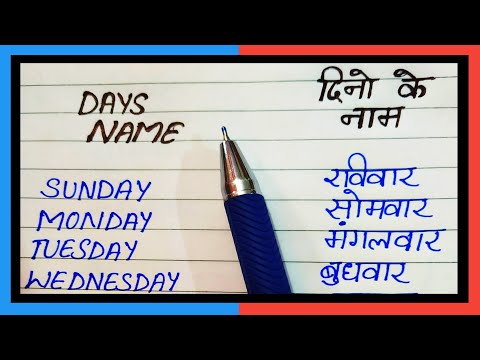 DAYS
NAME
दिनो के
नाम
SUNDAY
रविवार
MONDAY
सोमवार
TUESDAY
मंगलवार
WEDNESDAY
बुधवार